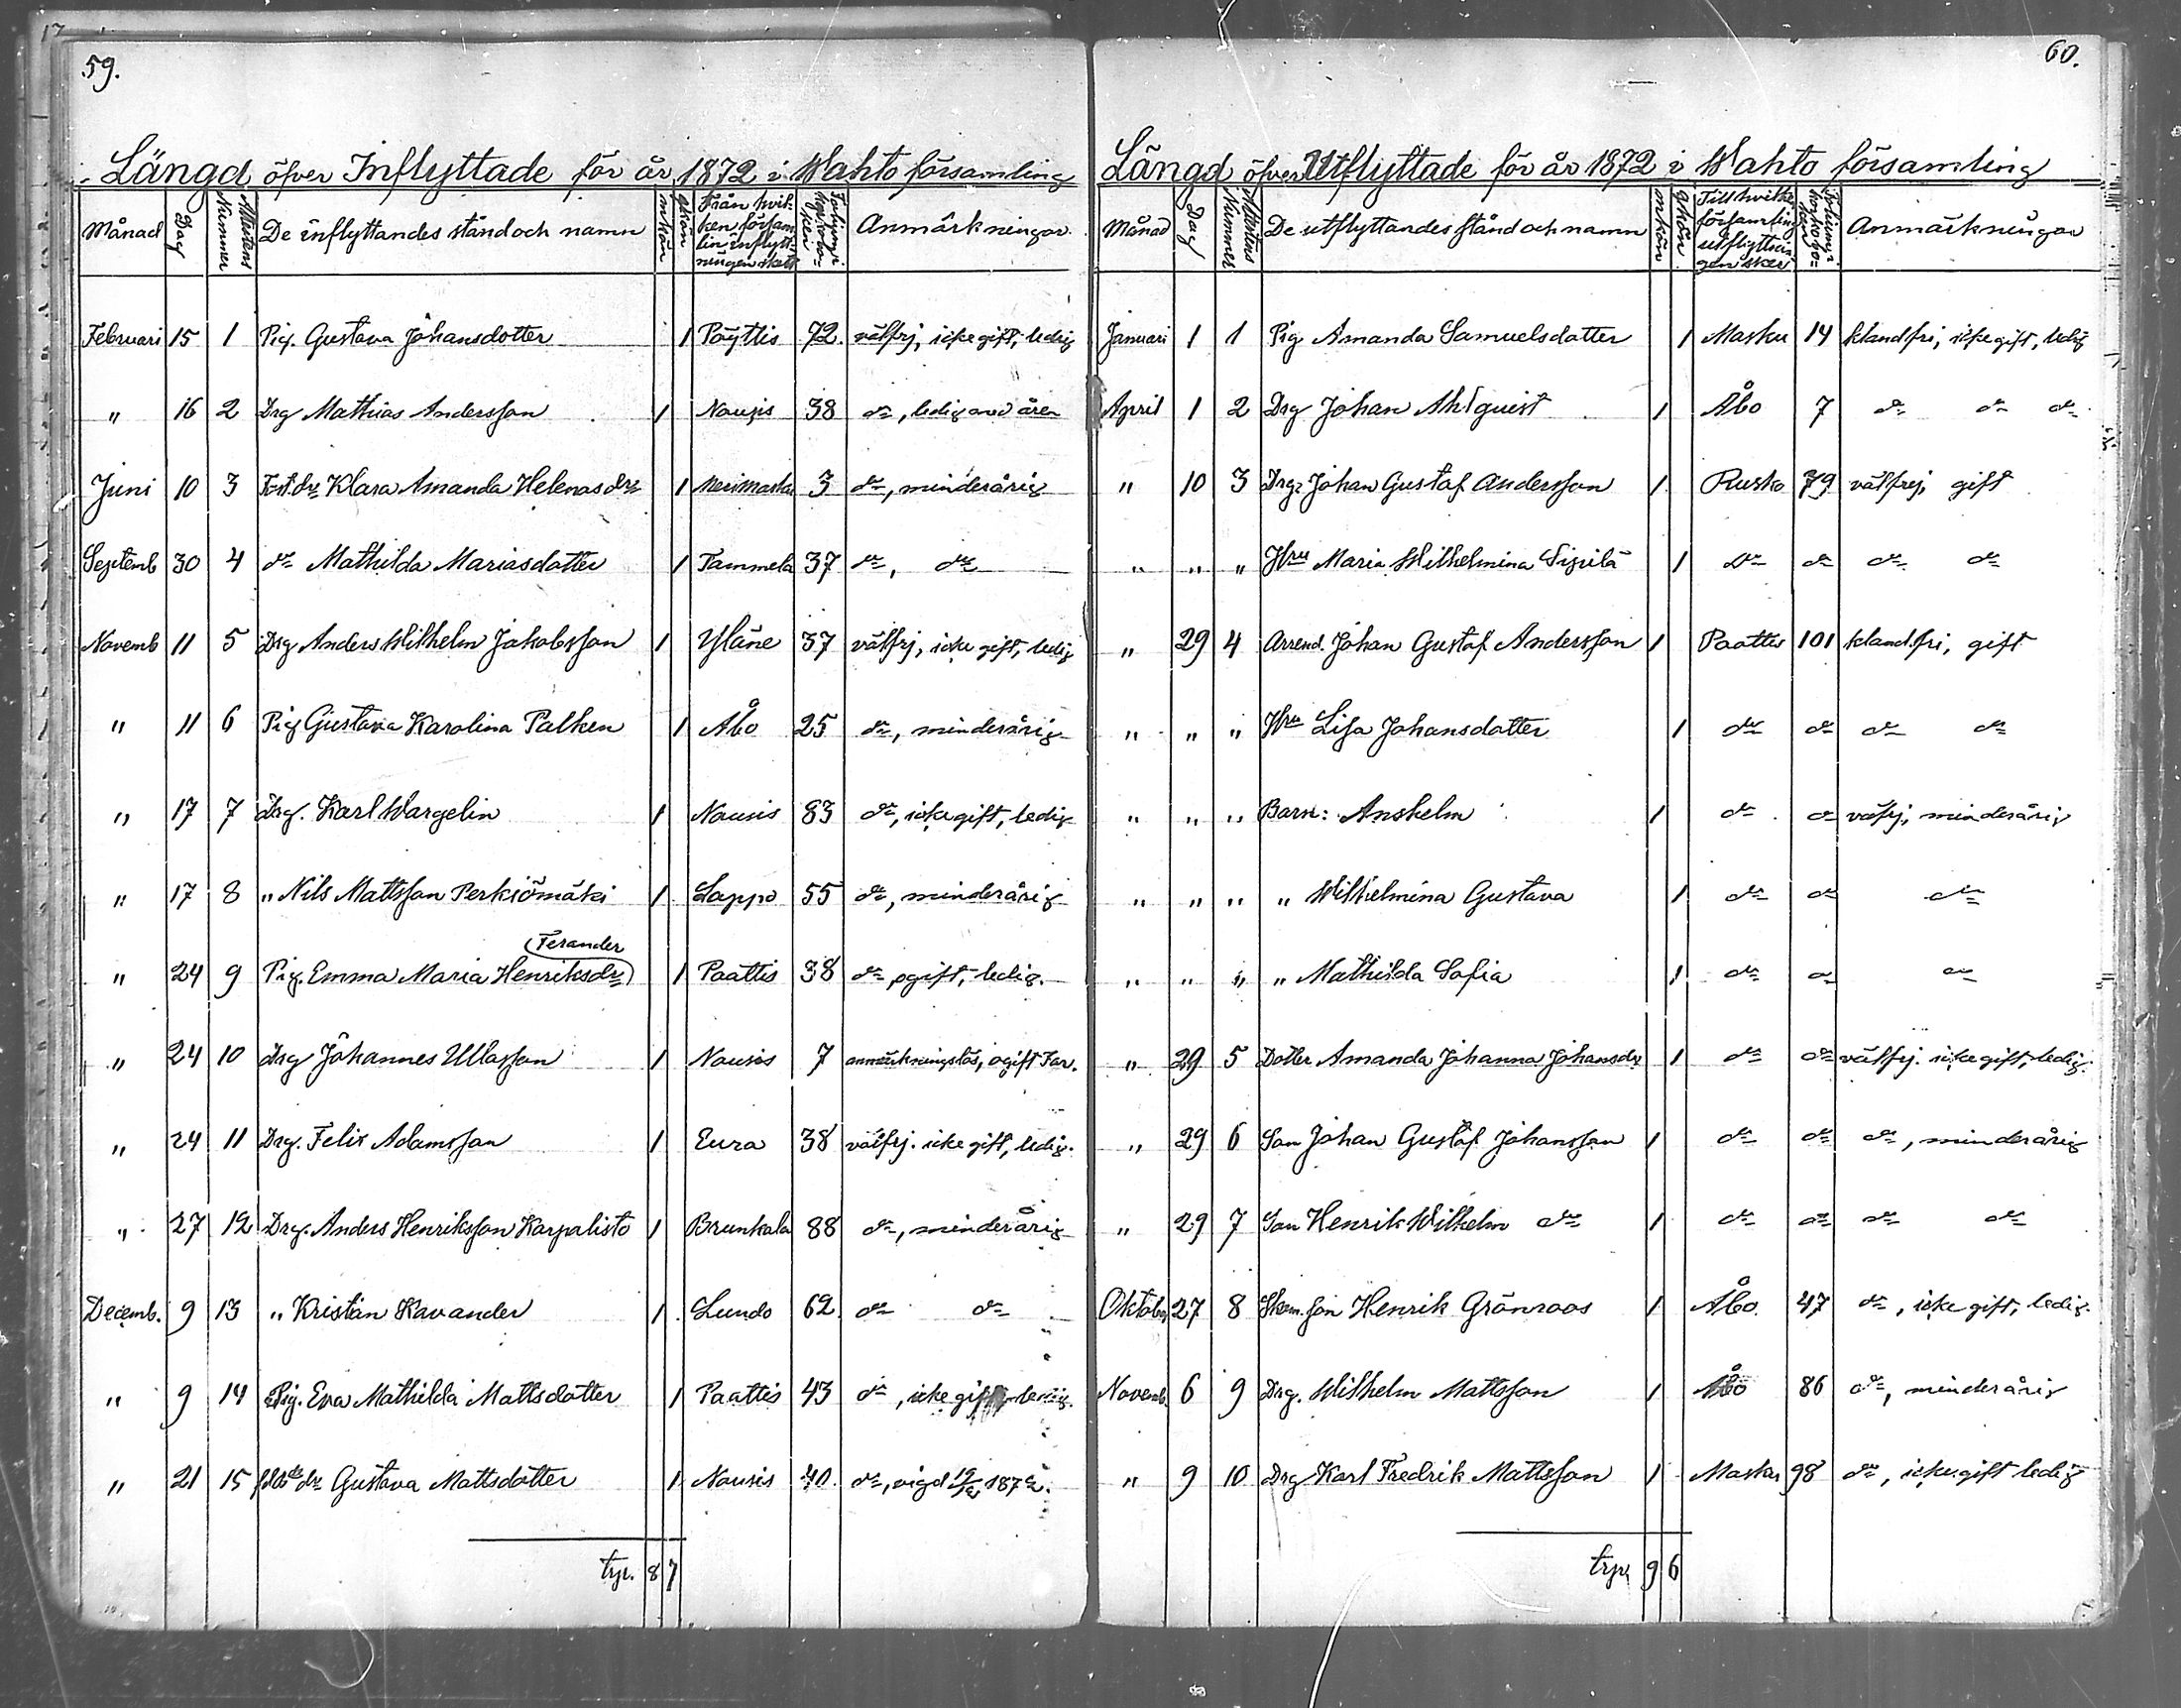 59.
Längd öfver Inflyttade för år 1872 i Wahto församling
Månad Dag Attestens Nummer De inflyttandes stånd och namn mkön qkön Från hvilken församlin inflyttningen skett Anmärkningar
Februari 15 1 Pig. Gustava Johansdotter 1 Pöytis 72. välfrj, icke gift, ledig
" 16 2 Drg Mathias Andersson 1 Nousis 38 do, ledig
Juni 10 3 Klara Amanda Helenasdr 1 Merimasku 3 do, minderårig
Septemb 30 4 do Mathilda Mariasdotter 1 Tammela 37 do, do
Novemb 11 5 Drg Anders Wilhelm Jakobsson 1 Yläne 37 välfrj, icke gift, ledig
" 11 6 Pig Gustava Karolina Palken 1 Åbo 25 do, minderårig
" 17 7 Drg. Karl Wargelin 1 Nousis 83 do, icke gift, ledig
" 17 8 " Nils Mattsson Perkiömäki 1 Lappo 55 do, minderårig
(Ferander
" 24 9 Pig. Emma Maria Henriksdr) 1 Paattis 38 do, ogift, ledig.
" 24 10 Drg Johannes Ullasson 1 Nousis 7 anmärkningslös, ogift Kar.
" 24 11 Drg. Felix Adamsson 1 Eura 38 välfrj. icke gift, ledig.
" 27 12 Drg. Anders Henriksson Karpalisto 1 Brunkala 88 do, minderårig
Decemb. 9 13 " Kristian Kavander 1 Lundo 62 do do
" 9 14 Pig. Eva Mathilda Mattsdotter 1 Paattis 43 do, icke gift, ledig.
" 21 15 dr Gustava Mattsdotter 1 Nousis 40 do, vigd 1872.
8 7
60.
Längd öfver Utflyttade för år 1872 i Wahto församling
Månad Dag Attestens Nummer De utflyttandes stånd och namn mkön qkön Till hvilken församling utflyttningen sker Anmärkningar
Januari 1 1 Pig Amanda Samuelsdotter 1 Masku 14 klandfri, icke gift, ledig
April 1 2 Drg Johan Ahlquist 1 Åbo 7 do do do
" 10 3 Drg Johan Gustaf Andersson 1 Rusko 79 välfrej, gift
" " " Hru Maria Wilhelmina Sipilä 1 do do do do
" 29 4 Arrend. Johan Gustaf Andersson 1 Paattis 101 klandfri, gift
" " " Hru Lisa Johansdotter 1 do do do do
" " " Barn: Anshelm 1 do do välfrj, minderårig
" " " " Wilhelmina Gustava 1 do do do
" " " " Mathilda Sofia 1 do do do
" 29 5 Dotter Amanda Johanna Johansdr 1 do do välfrj. icke gift, ledig.
" 29 6 Son Johan Gustaf Johansson 1 do do do, minderårig
" 29 7 Son Henrik Wilhelm do 1 do do do do
Oktober 27 8 son Henrik Grönroos 1 Åbo. 47 do, icke gift, ledig.
Novemb. 6 9 Drg. Wilhelm Mattsson 1 Åbo 86 do, minderårig
" 9 10 Drg Karl Fredrik Mattsson 1 Masku 98 do, icke gift ledig
9 6